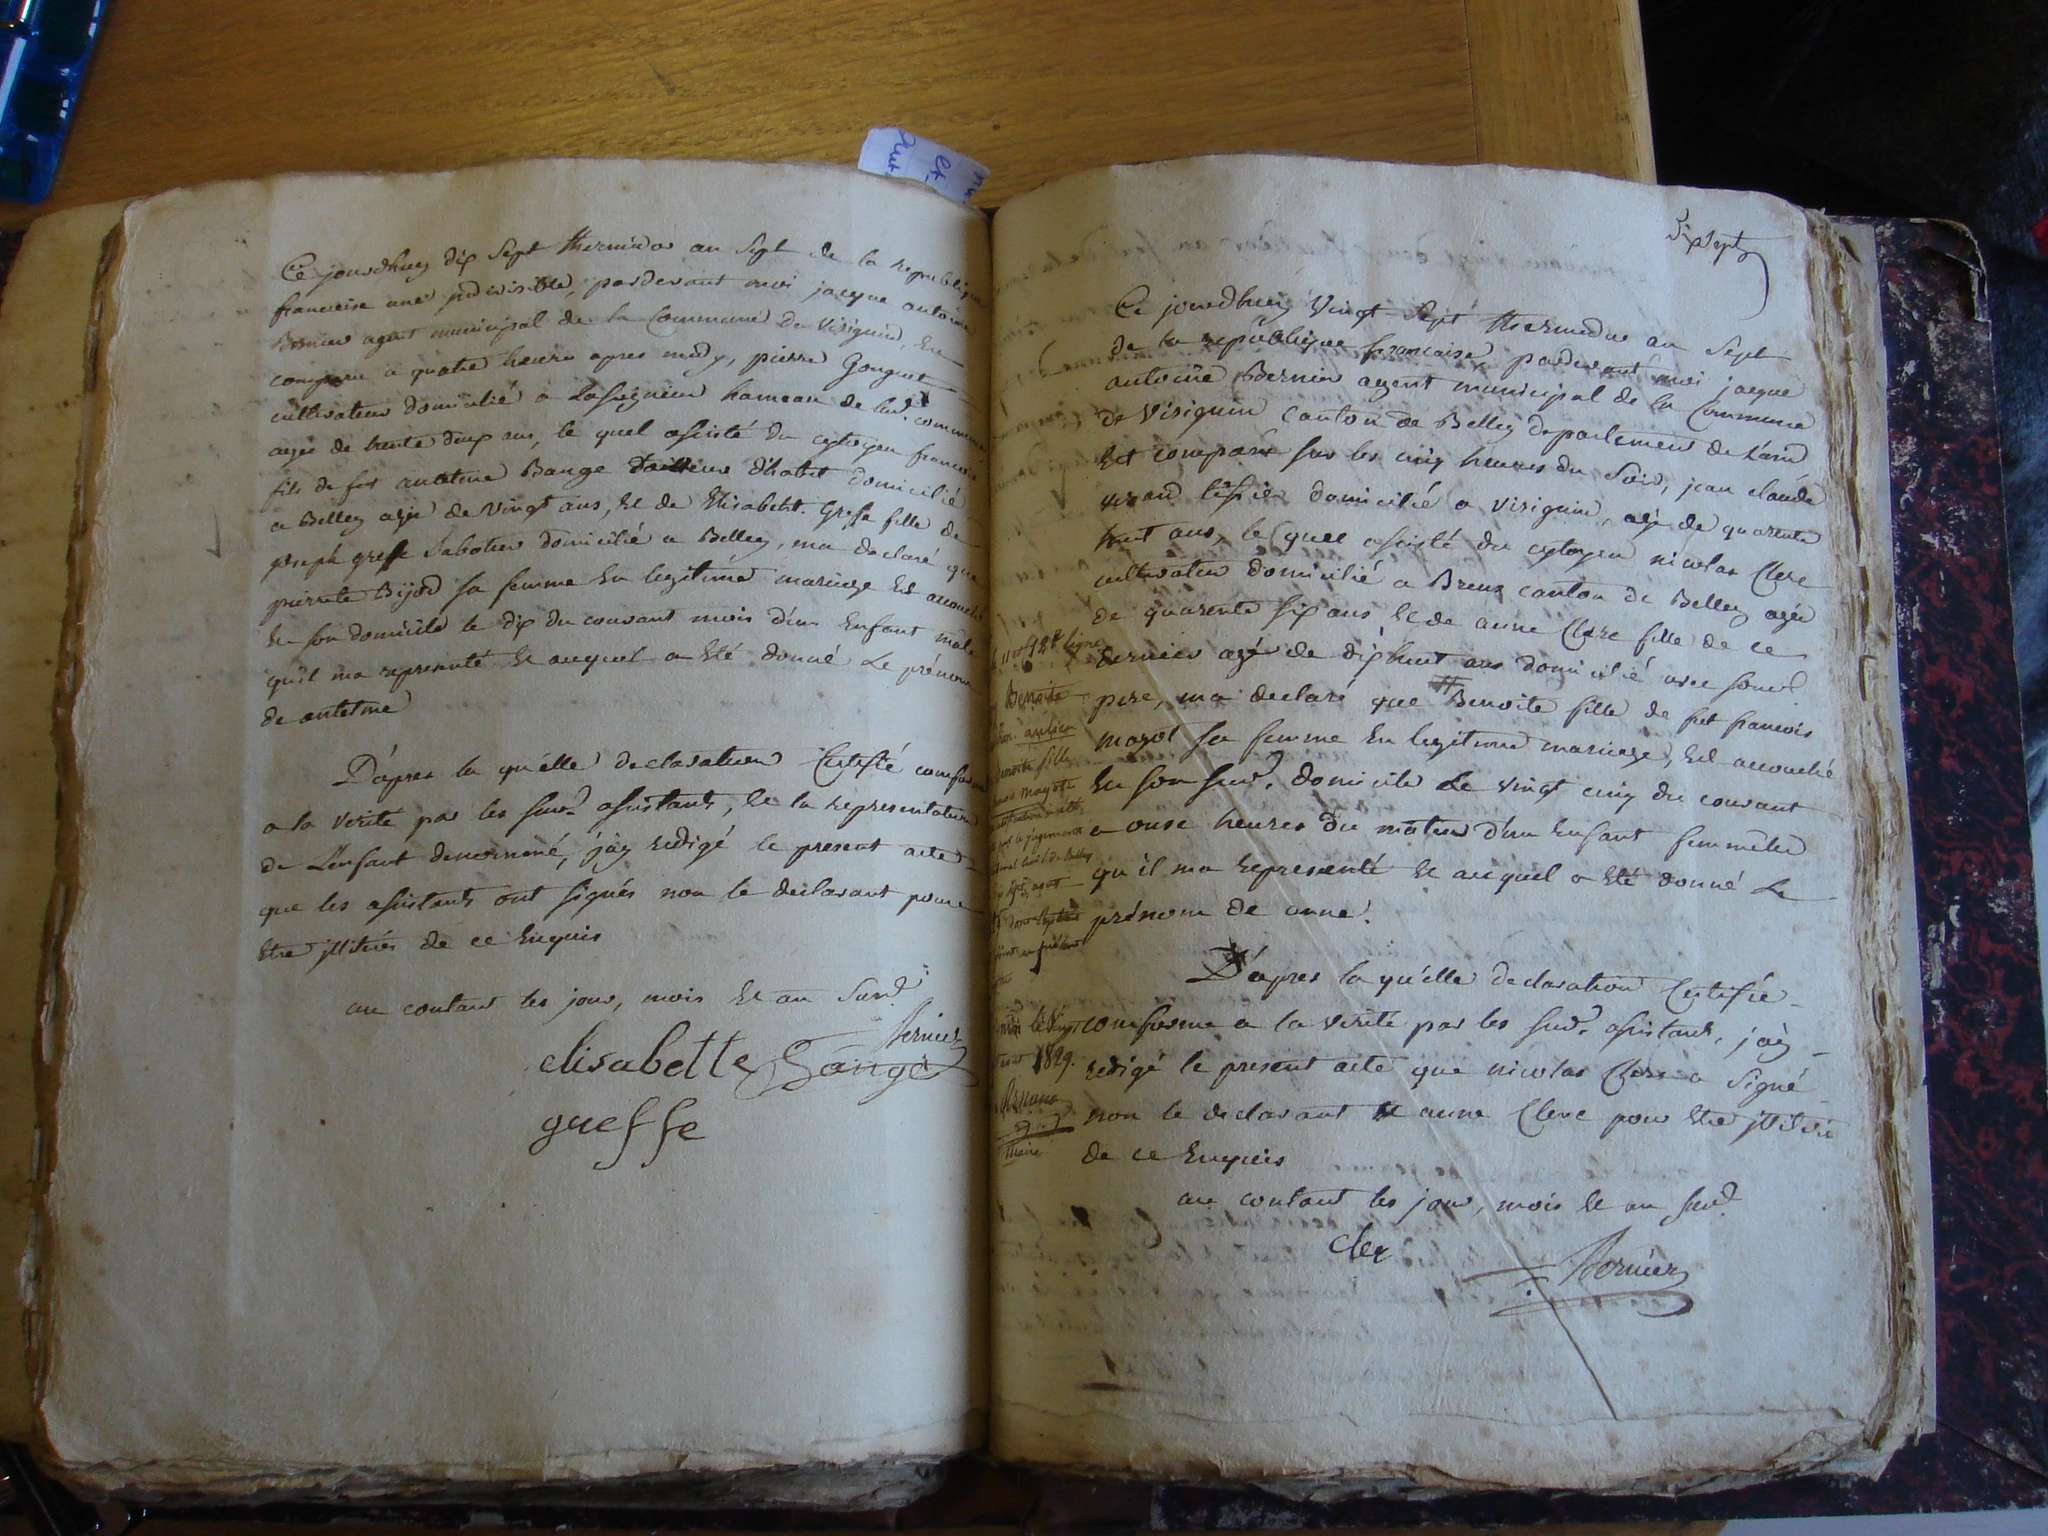 Ce jourdhuy dix Sept thermidor an Sept de la republique
francoise une jndivisible, pardevant moi jacque antoine
Bernier agent municipal de la Commune de Virignin, Est
comparu a quatre heures apres midy, pierre Gonguet
cultivateur domicilié a hameau de lad. commune
agée de trente deux ans, le quel assisté du cytoyen francois
fils de fut antelme Bange tailleur d'habit domicilié
a Belley agée de Vingt ans, Et de Elisabeth Greffe fille de
joseph greffe Sabotier domicilié a Belley, ma declaré que
pierrette Bijod sa femme En legitime mariage Est accouchée
En son domicile le dix du courant mois d'un Enfant male
qu'il ma representé Et auquel a Eté donné Le prénom
de antelme
D'apres la qu'elle declaration Certifié conforme
a la verité par les susd. assistants, Et la representation
de L'enfant denommé, j'ay redigé le present acte
que les assistants ont signés non le declarant pour
Etre jllitéré de ce Enquis
au contant les jour, mois Et an Susd.
Bernier
elisabette Bange
greffe
Dix Sept
Ce jourdhuy Vingt Sept thermidor an Sept
de la republique francoise, pardevant moi jacque
antoine Bernier agent municipal de la Commune
de Virignin Canton de Belley departement de L'ain
Est comparu sur les cinq heures du Soir, jean claude
domicilié a virignin, agé de quarente
huit ans, le quel assisté du cytoyen nicolas Clerc
cultivateur domicilié a Brens canton de Belley agée
de quarente six ans, Et de anne Clerc fille de ce
dernier agé de dixhuit ans domicilié avec sond.
pere, ma declaré que Benoite fille de fut francois
magot sa femme En legitime mariage, Est accouchée
En son susd. domicile Le vingt cinq du courant
a onse heures du matin d'un Enfant femmelle
qu'il ma representé Et auquel a Eté donné Le
prénom de anne.
ligne
Benoite
Benoite fille
magot
jugement
de Belley
1829.
maire
D'apres la qu'elle declaration Certifié
conforme a la verité par les susd. assistants, j'ay
redigé le present acte que nicolas Clerc a Signé
non le declarant Et anne Clerc pour Etre jllitéré
de ce Enquis
au contant les jour, mois Et an susd.
cler
Bernier